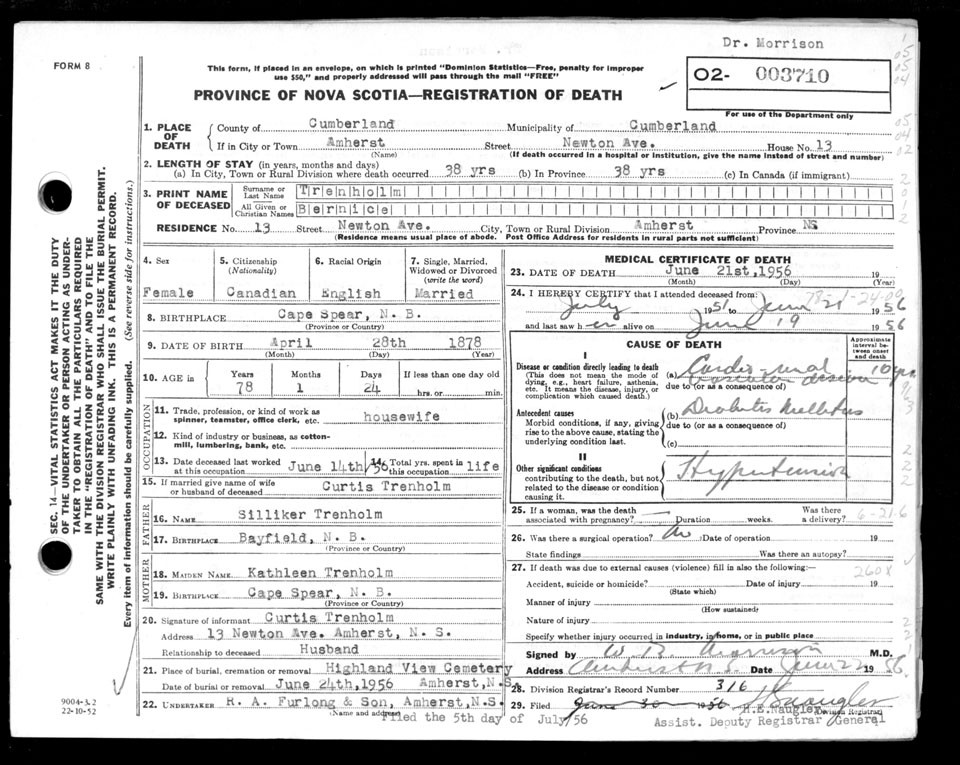 Dr. Morrison
FORM 8
This form, if placed in an envelope, on which is printed "Dominion Statistics—Free, penalty for improper
use $50," and properly addressed will pass through the mail "FREE"
02- 003710
For use of the Department only
PROVINCE OF NOVA SCOTIA—REGISTRATION OF DEATH
1. PLACE OF DEATH { County of Cumberland Municipality of Cumberland
If in City or Town Amherst Street Newton Ave. House No. 13
(Name) (If death occurred in a hospital or institution, give the name instead of street and number)
2. LENGTH OF STAY (in years, months and days)
(a) In City, Town or Rural Division where death occurred 38 yrs (b) In Province 38 yrs (c) In Canada (if immigrant)
3. PRINT NAME OF DECEASED { Surname or Last Name Trenholm
All Given or Christian Names Bernice
RESIDENCE No. 13 Street Newton Ave. City, Town or Rural Division Amherst Province NS
(Residence means usual place of abode. Post Office Address for residents in rural parts not sufficient)
4. Sex
Female
5. Citizenship
(Nationality)
Canadian
6. Racial Origin
English
7. Single, Married,
Widowed or Divorced
(write the word)
Married
8. BIRTHPLACE Cape Spear, N. B.
(Province or Country)
9. DATE OF BIRTH April 28th 1878
(Month) (Day) (Year)
10. AGE in Years Months Days If less than one day old
78 1 24 hrs. or min.
OCCUPATION
11. Trade, profession, or kind of work as
spinner, teamster, office clerk, etc. housewife
12. Kind of industry or business, as cotton-
mill, lumbering, bank, etc.
13. Date deceased last worked
at this occupation June 14th/56
14. Total yrs. spent in
this occupation life
15. If married give name of wife
or husband of deceased Curtis Trenholm
FATHER
16. NAME Silliker Trenholm
17. BIRTHPLACE Bayfield, N. B.
(Province or Country)
MOTHER
18. MAIDEN NAME Kathleen Trenholm
19. BIRTHPLACE Cape Spear, N. B.
(Province or Country)
20. Signature of informant Curtis Trenholm
Address 13 Newton Ave. Amherst, N. S.
Relationship to deceased Husband
21. Place of burial, cremation or removal Highland View Cemetery
Date of burial or removal June 24th,1956 Amherst,N.S.
22. UNDERTAKER R. A. Furlong & Son, Amherst,N.S.
(Name and address)
Filed the 5th day of July/56
MEDICAL CERTIFICATE OF DEATH
23. DATE OF DEATH June 21st,1956 19
(Month) (Day) (Year)
24. I HEREBY CERTIFY that I attended deceased from:
July 1951 to June 21 1956
and last saw her alive on June 19 1956
CAUSE OF DEATH
Approximate
interval be-
tween onset
and death
I
Disease or condition directly leading to death
(This does not mean the mode of
dying, e.g., heart failure, asthenia,
etc. It means the disease, injury, or
complication which caused death.)
(a) Cardio-renal
vascular disease 10 yrs
due to (or as a consequence of)
Antecedent causes
Morbid conditions, if any, giving
rise to the above cause, stating the
underlying condition last.
(b) Diabetes Mellitus
due to (or as a consequence of)
(c)
II
Other significant conditions
contributing to the death, but not
related to the disease or condition
causing it.
Hypertension
25. If a woman, was the death Was there
associated with pregnancy? Duration weeks. a delivery?
6-21-6
26. Was there a surgical operation? no Date of operation 19
State findings Was there an autopsy?
27. If death was due to external causes (violence) fill in also the following:—
260X
Accident, suicide or homicide? Date of injury 19
(State which)
Manner of injury
(How sustained)
Nature of injury
Specify whether injury occurred in industry, in home, or in public place
Signed by W B Morrison M.D.
Address Amherst N S Date June 22 1956
28. Division Registrar's Record Number 316
29. Filed June 30 1956 H Naugler
H.E.Naugler Division Registrar
Assist. Deputy Registrar General
SEC. 14—VITAL STATISTICS ACT MAKES IT THE DUTY
OF THE UNDERTAKER OR PERSON ACTING AS UNDER-
TAKER TO OBTAIN ALL THE PARTICULARS REQUIRED
IN THE "REGISTRATION OF DEATH" AND TO FILE THE
SAME WITH THE DIVISION REGISTRAR WHO SHALL ISSUE THE BURIAL PERMIT.
WRITE PLAINLY WITH UNFADING INK. THIS IS A PERMANENT RECORD.
Every item of information should be carefully supplied. (See reverse side for instructions.)
9004-3.2
22-10-52